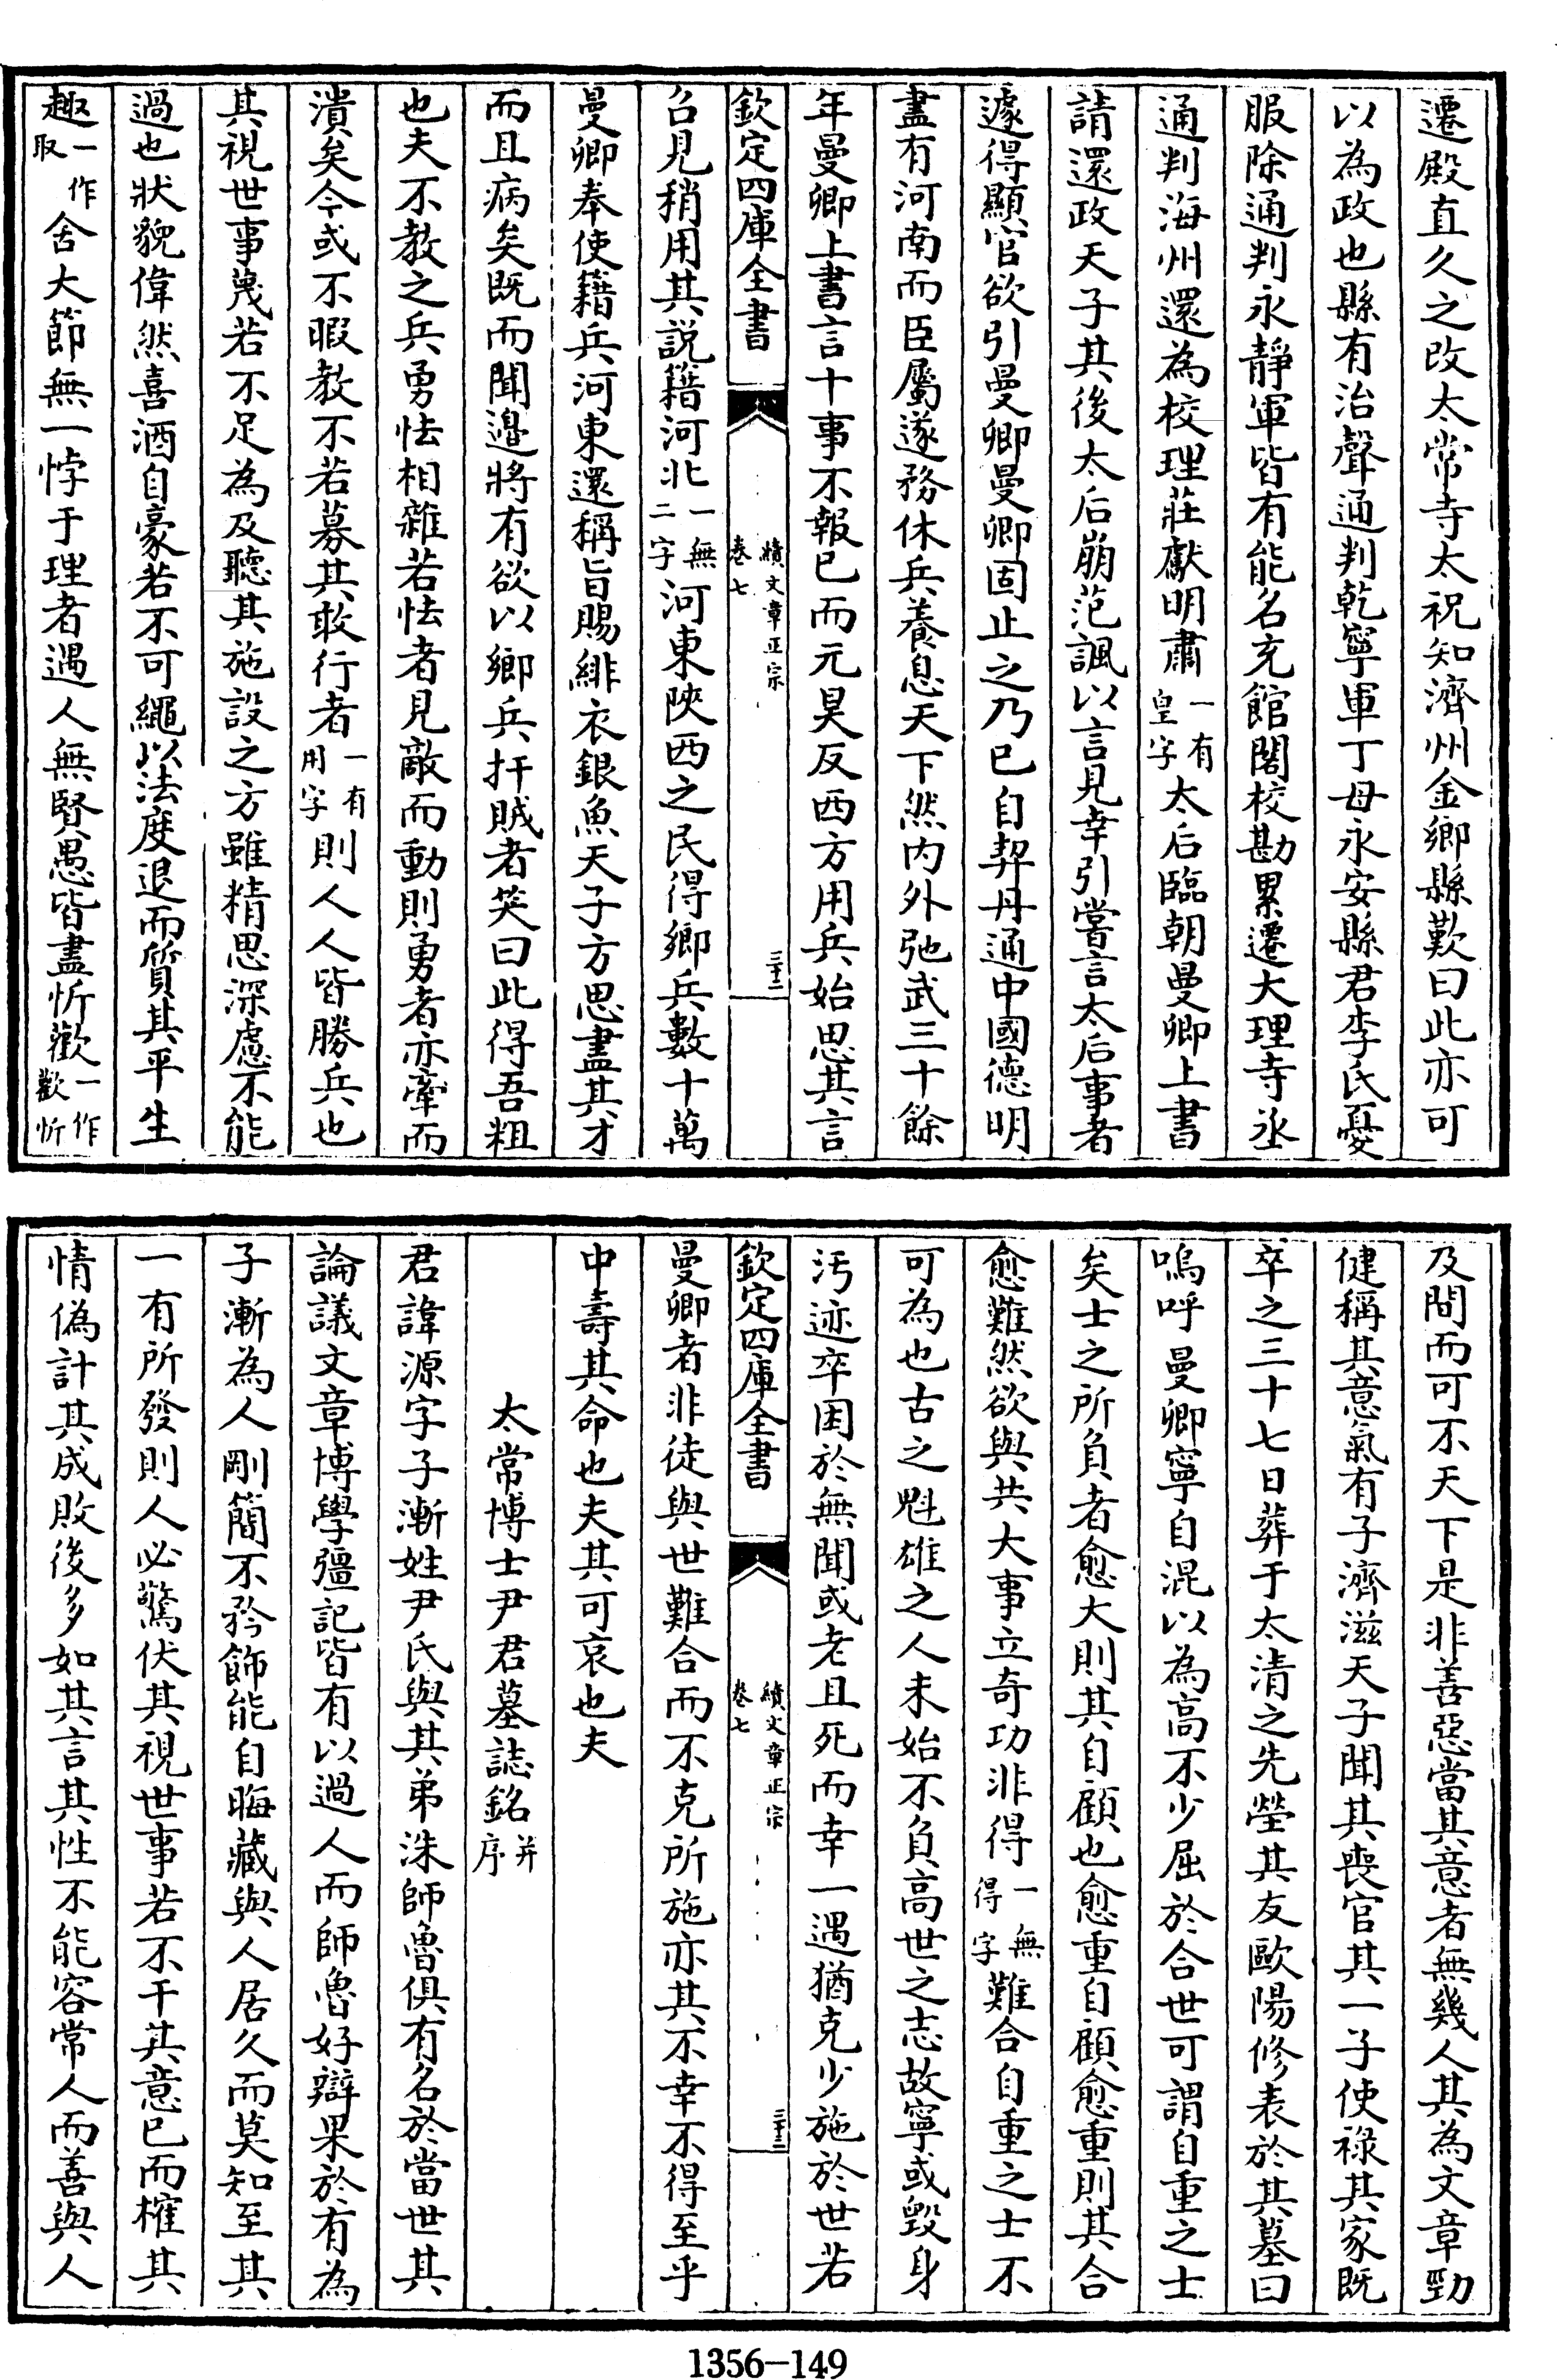 遷殿直久之改太常寺太祝知濟州金鄉縣歎曰此亦可
以為政也縣有治聲通判乾寧軍丁母永安縣君李氏憂
服除通判永靜軍皆有能名充館閣校勘累遷大理寺丞
通判海州還為校理莊獻明肅一有皇字太后臨朝曼卿上書
請還政天子其後太后崩范諷以言見幸引嘗言太后事者
遽得顯官欲引曼卿曼卿固止之乃已自契丹通中國德明
盡有河南而臣屬遂務休兵養息天下然内外弛武三十餘
年曼卿上書言十事不報已而元昊反西方用兵始思其言
欽定四庫全書 續文章正宗 卷七 三十二
召見稍用其説籍河北一無二字河東陜西之民得鄉兵數十萬
曼卿奉使籍兵河東還稱旨賜緋衣銀魚天子方思盡其才
而且病矣既而聞邉將有欲以鄉兵扞賊者笑曰此得吾粗
也夫不教之兵勇怯相雜若怯者見敵而動則勇者亦牽而
潰矣今或不暇教不若募其敢行者一有用字則人人皆勝兵也
其視世事蔑若不足為及聽其施設之方雖精思深慮不能
過也狀貌偉然喜酒自豪若不可繩以法度退而質其平生
趣一作取舍大節無一悖于理者遇人無賢愚皆盡忻歡一作歡忻
及間而可不天下是非善惡當其意者無幾人其為文章勁
健稱其意氣有子濟滋天子聞其喪官其一子使祿其家既
卒之三十七日葬于太清之先塋其友歐陽修表於其墓曰
嗚呼曼卿寧自混以為高不少屈於合世可謂自重之士
矣士之所負者愈大則其自顧也愈重自顧愈重則其合
愈難然欲與共大事立奇功非得一無得字難合自重之士不
可為也古之魁雄之人未始不負高世之志故寧或毀身
汚迹卒困於無聞或老且死而幸一遇猶克少施於世若
欽定四庫全書 續文章正宗 卷七 三十三
曼卿者非徒與世難合而不克所施亦其不幸不得至乎
中壽其命也夫其可哀也夫
太常博士尹君墓誌銘并序
君諱源字子漸姓尹氏與其弟洙師魯俱有名於當世其
論議文章博學彊記皆有以過人而師魯好辯果於有為
子漸為人剛簡不矜飾能自晦藏與人居久而莫知至其
一有所發則人必驚伏其視世事若不干其意已而榷其
情偽計其成敗後多如其言其性不能容常人而善與人
1356-149